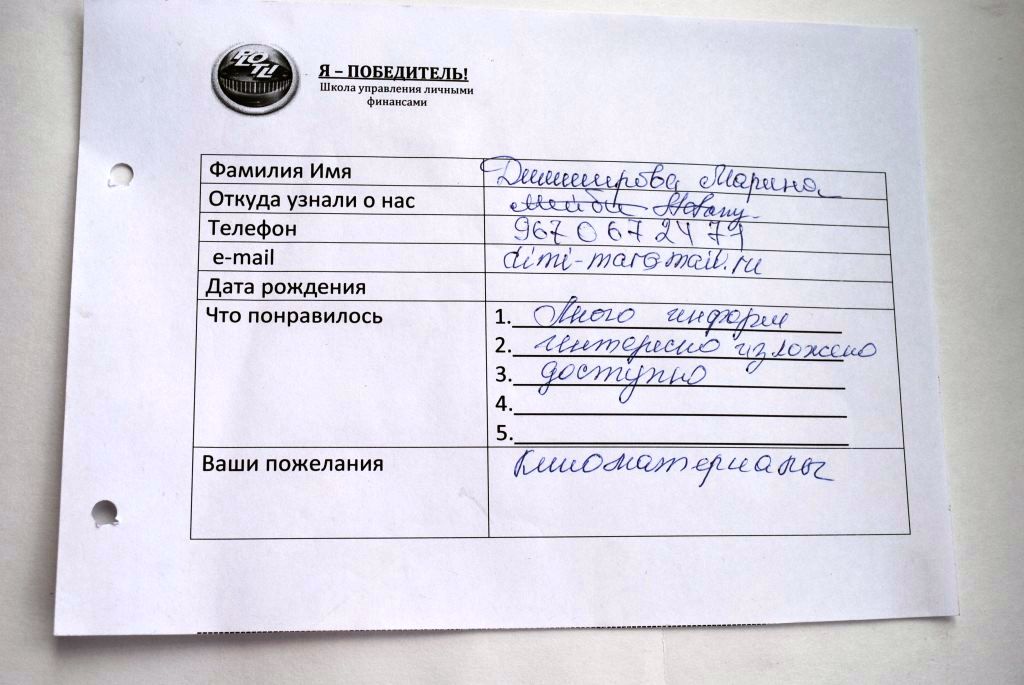 Я – ПОБЕДИТЕЛЬ!
Школа управления личными
финансами
Фамилия Имя Димитрова Марина
Откуда узнали о нас
Телефон 967 0672477
e-mail dimi-mar@mail.ru
Дата рождения
Что понравилось
1. Много информ
2. интересно изложено
3. доступно
4.
5.
Ваши пожелания киноматериалы